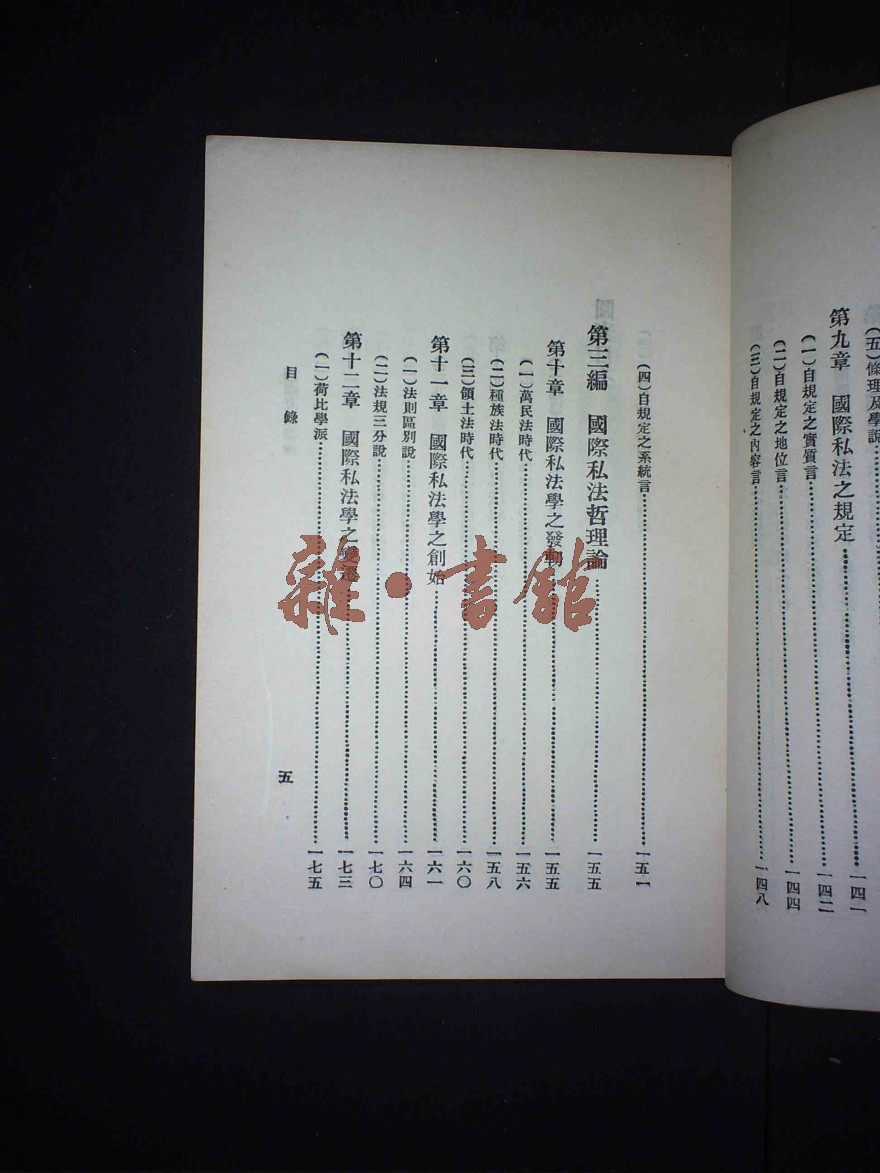 (五)條理及學說
第九章 國際私法之規定……一四一
(一)自規定之實質言……一四二
(二)自規定之地位言……一四四
(三)自規定之內容言……一四八
(四)自規定之系統言……一五一
第三編 國際私法哲理論……一五五
第十章 國際私法學之發軔……一五五
(一)萬民法時代……一五六
(二)種族法時代……一五八
(三)領土法時代……一六〇
第十一章 國際私法學之創始……一六一
(一)法則區別說……一六四
(二)法規三分說……一七〇
第十二章 國際私法學之變遷……一七三
(一)荷比學派……一七五
目錄
五
雜·書館